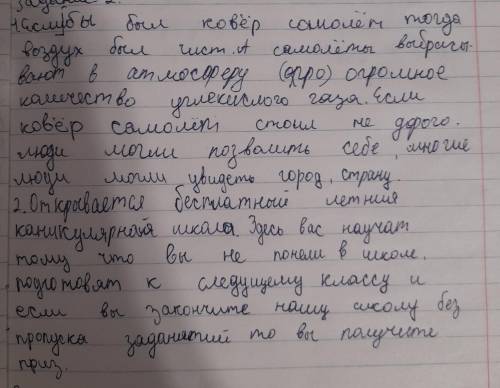 задание 2.
1Еслубы был ковёр самолёт тогда
воздух был чист. А самолёты выбрасы-
вают в атмосферу огромное
каличество углекислого газа. Если
ковёр самолёт стоил не дорого.
люди могли позвалить себе, многие
люди могли увидеть город, страну.
2. Открывается бесплатный летния
каникулярная школа. Здесь вас научат
тому что вы не понели в школе.
подготовят к следущему классу и
если вы закончите нашу школу без
пропуска заданятий то вы получите
приз.